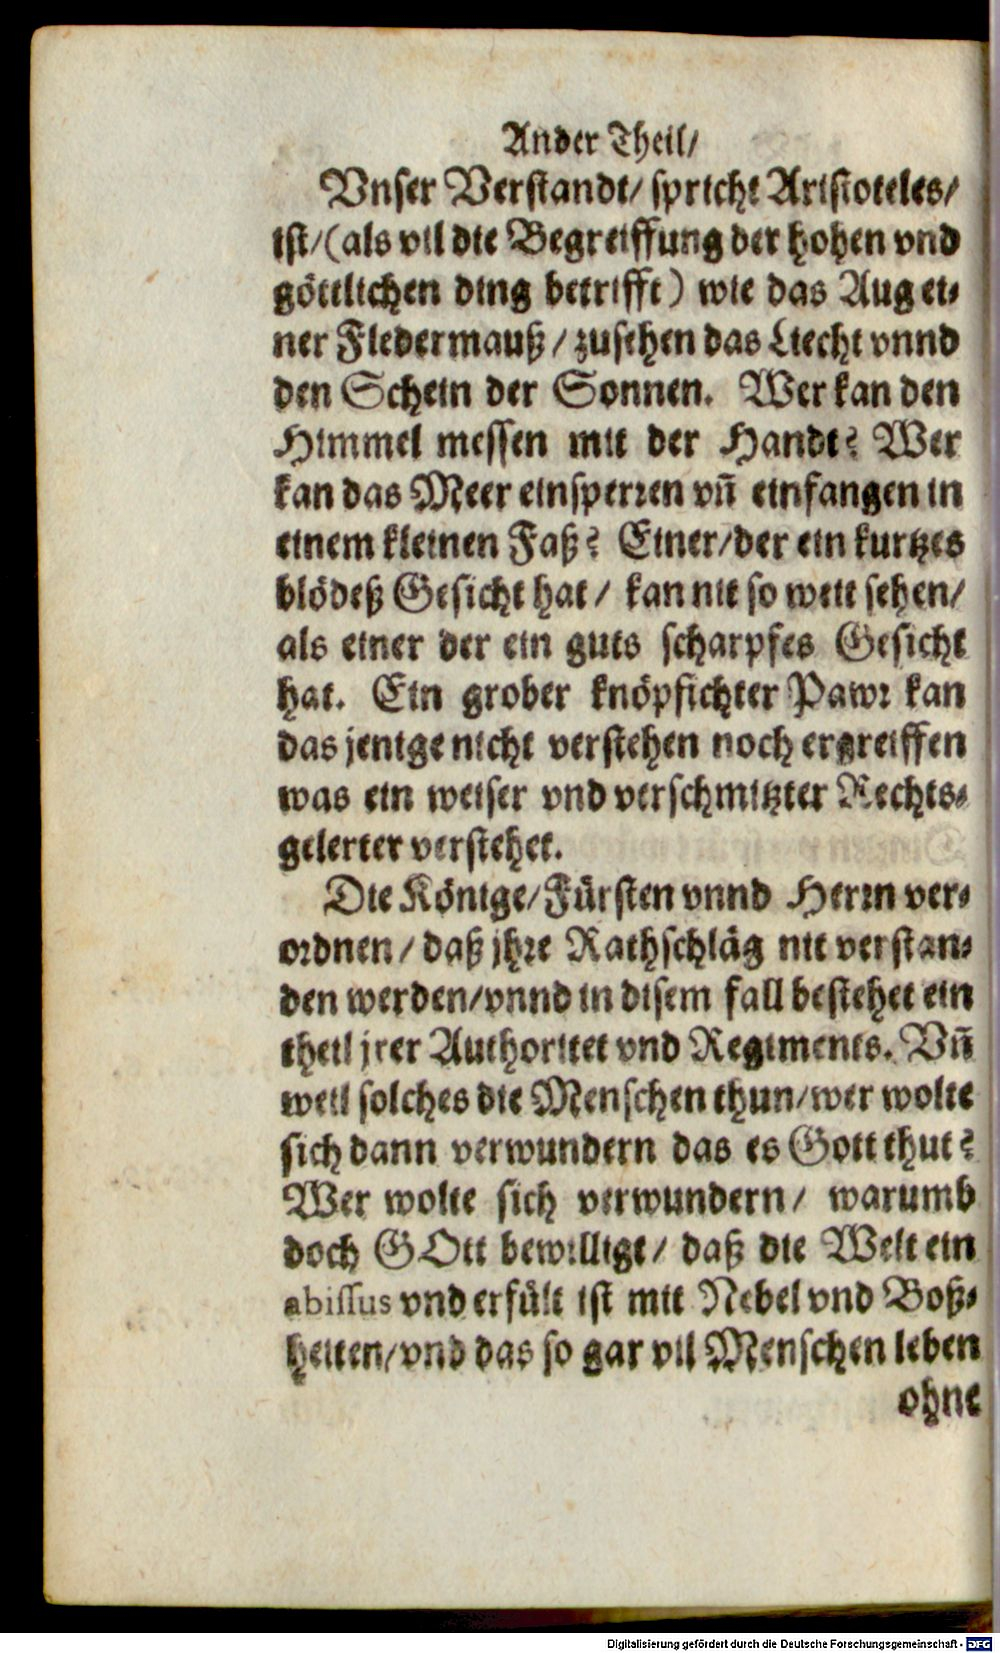 Ander Theil/
Vnser Verstandt/ spricht Aristoteles/
ist/ (als vil die Begreiffung der hohen vnd
göttlichen ding betrifft) wie das Aug ei-
ner Fledermauß / zusehen das Liecht vnnd
den Schein der Sonnen. Wer kan den
Himmel messen mit der Handt? Wer
kan das Meer einsperren vñ einfangen in
einem kleinen Faß? Einer/ der ein kurtzes
blödeß Gesicht hat / kan nit so weit sehen/
als einer der ein guts scharpfes Gesicht
hat. Ein grober knöpfichter Pawr kan
das jenige nicht verstehen noch ergreiffen
was ein weiser vnd verschmitzter Rechts-
gelerter verstehet.
Die Könige/ Fürsten vnnd Herrn ver-
ordnen / daß jhre Rathschläg nit verstan-
den werden/ vnnd in disem fall bestehet ein
theil jrer Authoritet vnd Regiments. Vñ
weil solches die Menschen thun/ wer wolte
sich dann verwundern das es Gott thut?
Wer wolte sich verwundern / warumb
doch GOtt bewilligt / daß die Welt ein
abissus vnd erfült ist mit Nebel vnd Boß-
heiten/ vnd das so gar vil Menschen leben
ohne
Digitalisierung gefördert durch die Deutsche Forschungsgemeinschaft - DFG